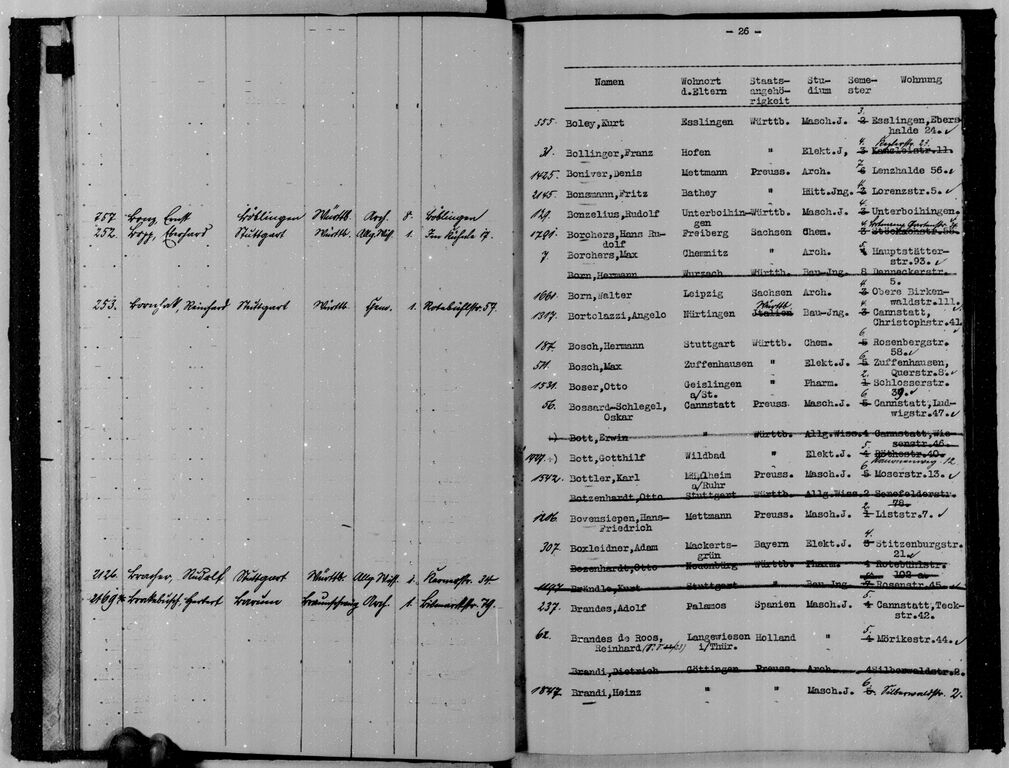 257. Ernst Böblingen Württb. Arch. 8. Böblingen
252. Stuttgart Württb. 1.
253. Stuttgart Württb. Chem. 1. Rotebühlstr. 57.
2126. Rudolf Stuttgart Württb. 34
2169 Herbert Arch. 1. Bismarckstr. 79.
- 26 -
Namen Wohnort Staats- Stu- Seme- Wohnung
d.Eltern angehö- dium ster
rigkeit
3.
555. Boley,Kurt Esslingen Württb. Masch.J. 2 Esslingen,Ebers
halde 24.
4.
31. Bollinger,Franz Hofen " Elekt.J, 3 Kanzleistr.11.
7.
1425. Boniver,Denis Mettmann Preuss. Arch. 6 Lenzhalde 56.
2145. Bonsmann,Fritz Bathey " Hütt.Jng. 2 Lorenzstr.5.
4.
129. Bonzelius,Rudolf Unterboihin- Württb. Masch.J. 3 Unterboihingen.
gen
1791. Borchers,Hans Ru- Freiberg Sachsen Chem. 3
dolf
5.
7 Borchers,Max Chemnitz " Arch. 4 Hauptstätter-
str.93.
Born,Hermann Wurzach Württb. Bau-Jng. 8 Danneckerstr.
5.
4.
1661. Born,Walter Leipzig Sachsen Arch. 3 Obere Birken-
waldstr.111.
Württb.
4.
1317. Bortolazzi,Angelo Nürtingen Italien Bau-Jng. 3 Cannstatt,
Christophstr.41
6.
187. Bosch,Hermann Stuttgart Württb. Chem. 5 Rosenbergstr.
58.
6.
511. Bosch,Max Zuffenhausen " Elekt.J. 5 Zuffenhausen,
Querstr.8.
2.
1531. Boser,Otto Geislingen " Pharm. 1 Schlosserstr.
a/St. 39.
6
56. Bossard-Schlegel, Cannstatt Preuss. Masch.J. 5 Cannstatt,Lud-
Oskar wigstr.47.
Bott,Erwin " Württb. Allg.Wiss.4 Cannstatt,Wie-
senstr.46.
5.
1777. Bott,Gotthilf Wildbad " Elekt.J. 4 Röthestr.40.
12
6
1542. Bottler,Karl Mülheim Preuss. Masch.J. 5 Moserstr.13.
a/Ruhr
Botzenhardt,Otto Stuttgart Württb. Allg.Wiss.2 Senefelderstr.
78.
2.
1206. Bovensiepen,Hans- Mettmann Preuss. Masch.J. 1 Liststr.7.
Friedrich
4.
307. Boxleidner,Adam Mackerts- Bayern Elekt.J. 3 Stitzenburgstr.
grün 21.
Bozenhardt,Otto Neuenbürg Württb. Pharm. 4 Rotebühlstr.
102 a.
1197. Brändle,Kurt Stuttgart " Bau-Jng. 7 Rosenstr.45.
5.
237. Brandes,Adolf Palamos Spanien Masch.J. 4 Cannstatt,Teck-
str.42.
5.
62. Brandes de Roos, Langewiesen Holland " 4 Mörikestr.44.
Reinhard i/Thür.
Brandi,Dietrich Göttingen Preuss. Arch. 4 Silberwaldstr.2.
6.
1847. Brandi,Heinz " " Masch.J. 5. Silberwaldstr. 2.